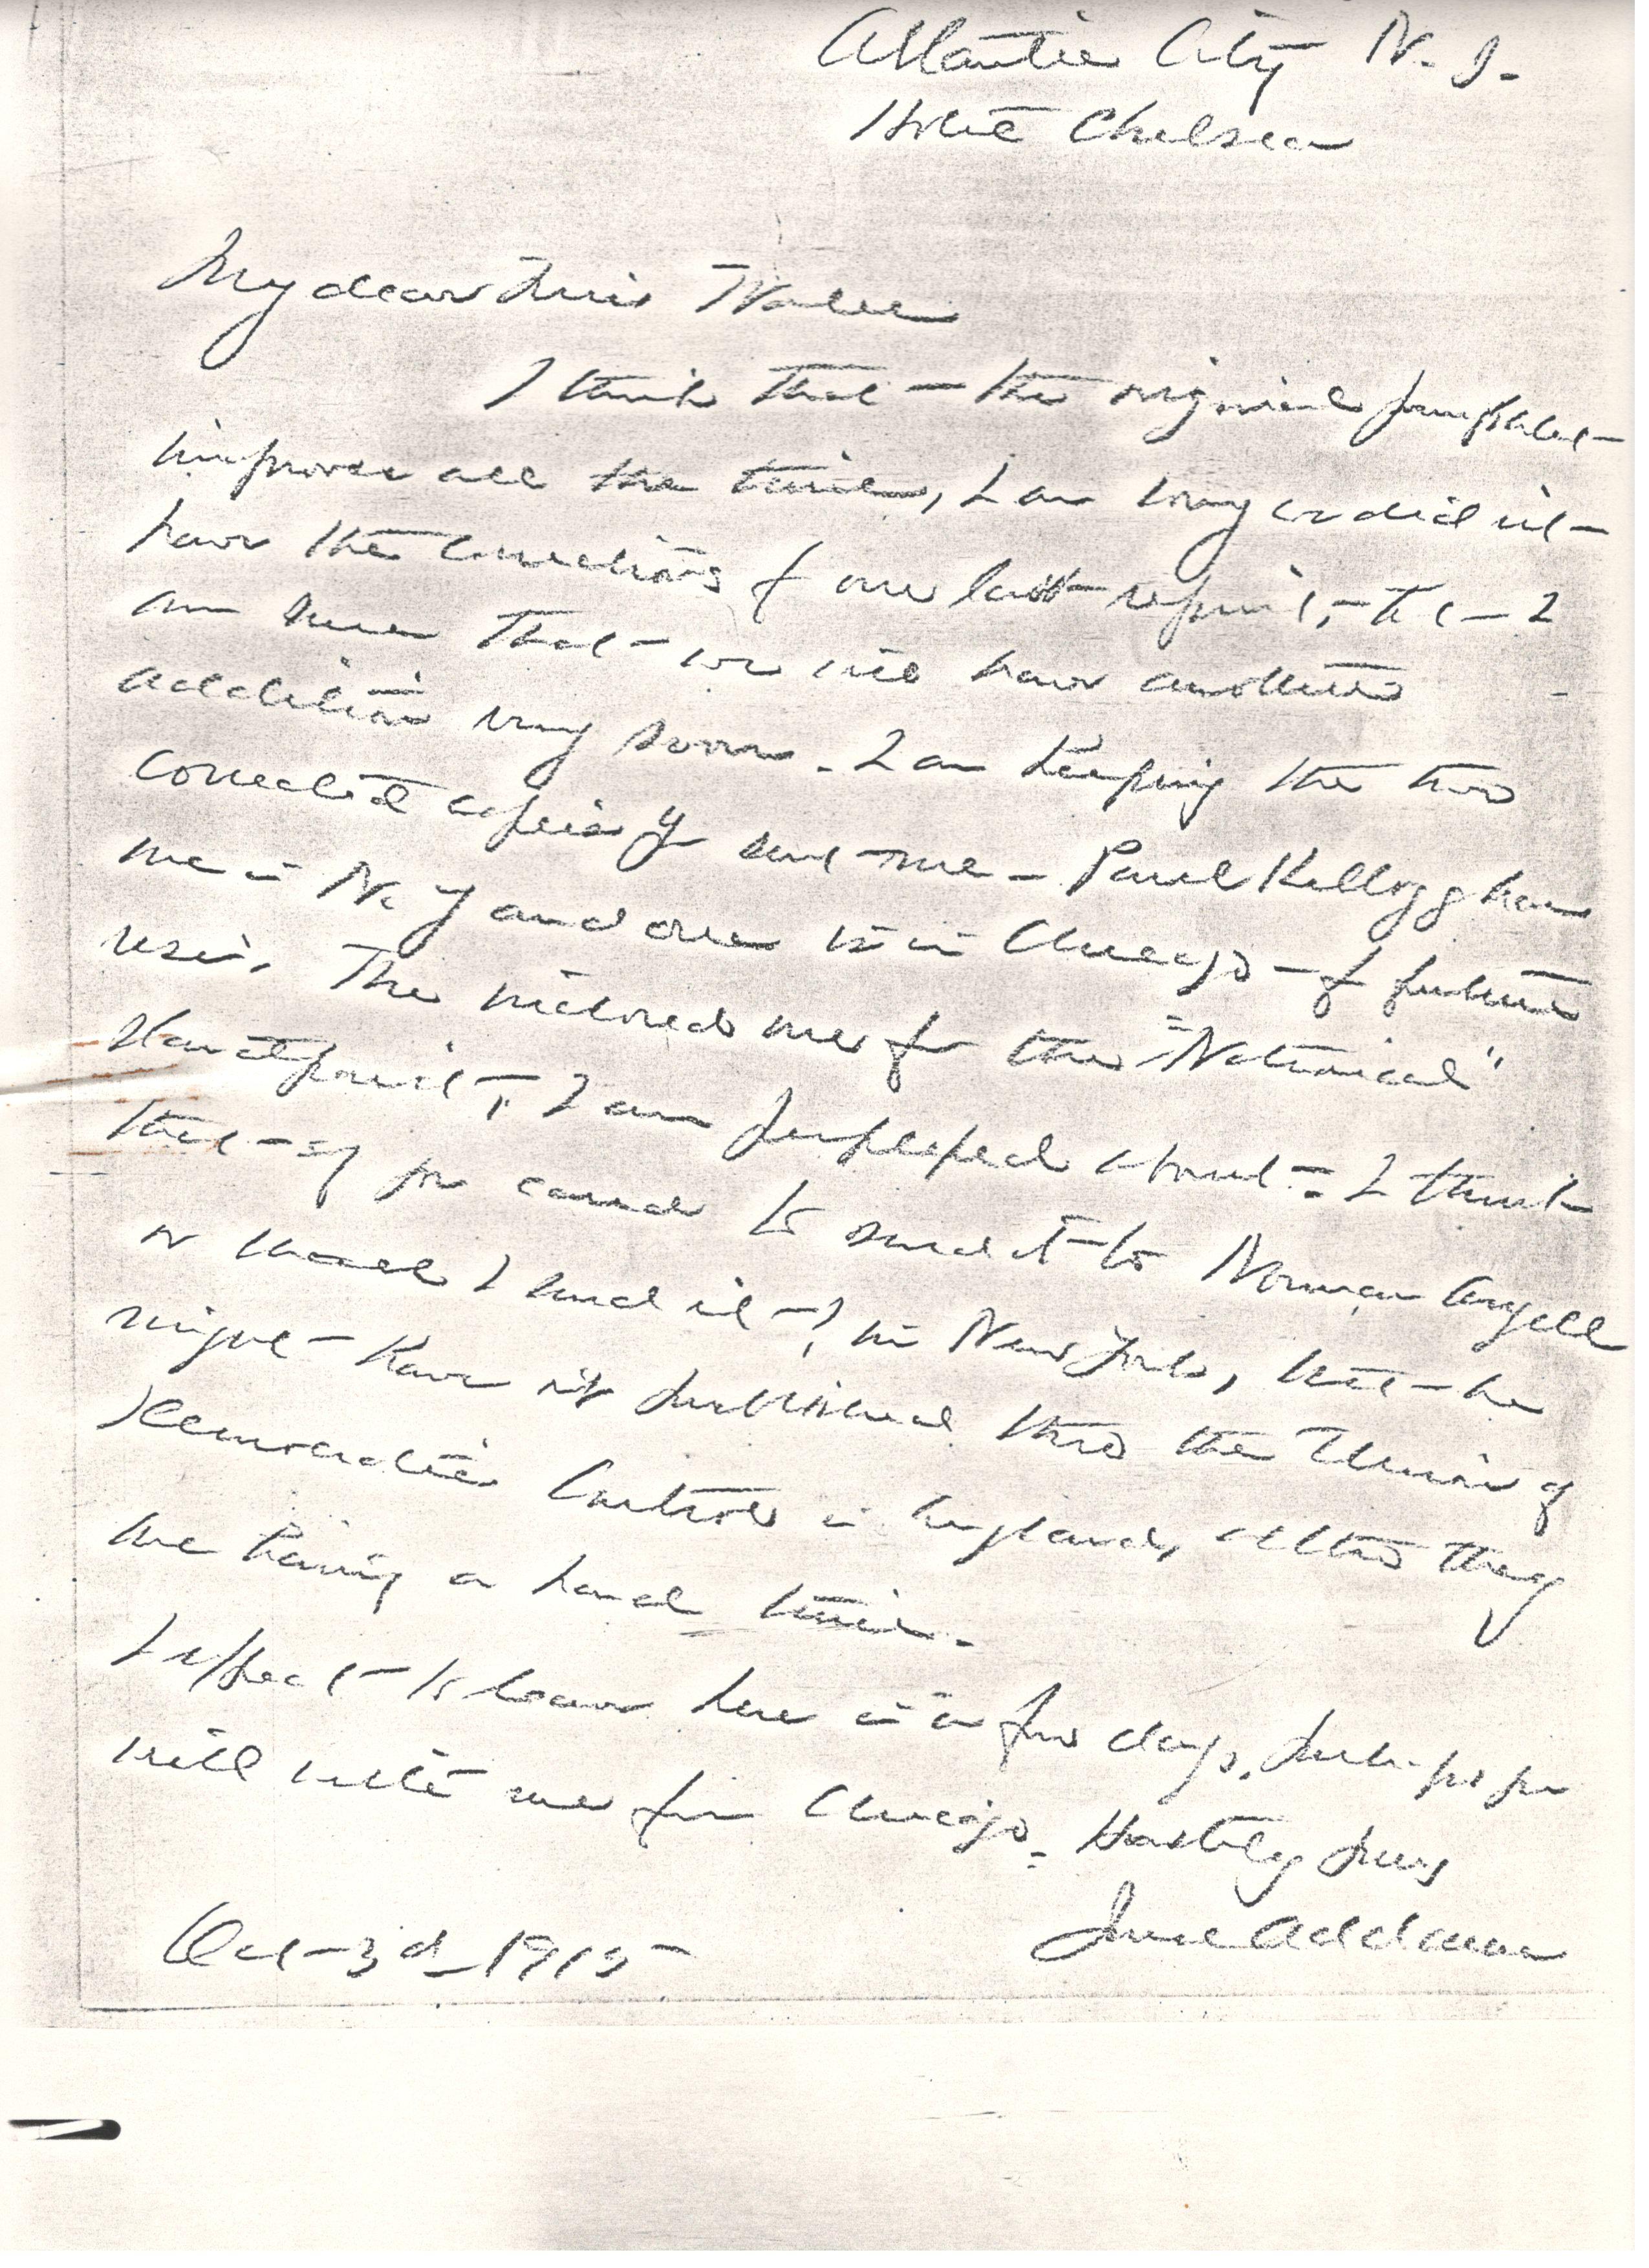 Atlantic City N. J.
Hotel Chelsea
My dear Miss Wales
I think that the original pamphlet
improves all the time, I am sorry we did not
have the corrections for our last reprint, but I
am sure that we will have another
addition very soon. I am keeping the two
corrected copies you sent me - Paul Kellogg has
one in N. Y and one is in Chicago - for future
use. The enclosed one for the "National"
Standpoint, I am perplexed about - I think
that if you cared to send it to Norman Angell
or shall I send it? in New York, that he
might have it published thro the Union of
Democratic Control in England, altho they
are having a hard time.
I expect to leave here in a few days, perhaps you
will write me from Chicago. Hastily yours
Jane Addams
Oct 3d 1915